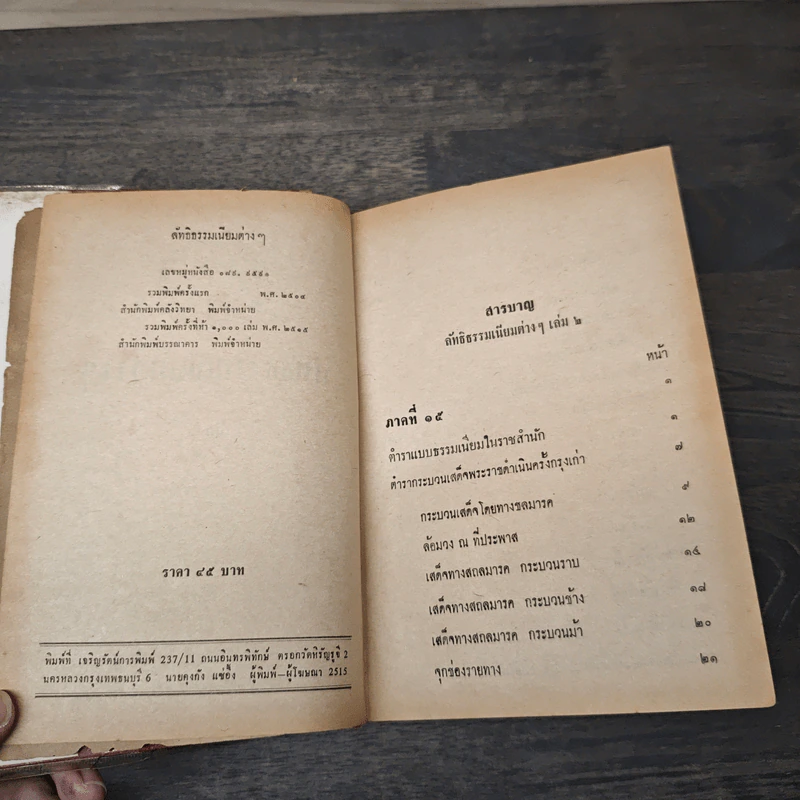 ลัทธิธรรมเนียมต่าง ๆ
เลขหมู่หนังสือ ๓๙๔. ๔๕๙๑
รวมพิมพ์ครั้งแรก พ.ศ. ๒๕๐๔
สำนักพิมพ์คลังวิทยา พิมพ์จำหน่าย
รวมพิมพ์ครั้งที่ห้า ๑,๐๐๐ เล่ม พ.ศ. ๒๕๑๕
สำนักพิมพ์บรรณาคาร พิมพ์จำหน่าย
ราคา ๔๕ บาท
พิมพ์ที่ เจริญรัตน์การพิมพ์ 237/11 ถนนอินทรพิทักษ์ ตรอกวัดหิรัญรูจี 2
นครหลวงกรุงเทพธนบุรี 6 นายคุงกัง แซ่อึ้ง ผู้พิมพ์—ผู้โฆษณา 2515
สารบาญ
ลัทธิธรรมเนียมต่าง ๆ เล่ม ๒
หน้า
ภาคที่ ๑๕ ๑
ตำราแบบธรรมเนียมในราชสำนัก ๑
ตำรากระบวนเสด็จพระราชดำเนินครั้งกรุงเก่า ๗
กระบวนเสด็จโดยทางชลมารค ๙
ล้อมวง ณ ที่ประพาส ๑๒
เสด็จทางสถลมารค กระบวนราบ ๑๔
เสด็จทางสถลมารค กระบวนช้าง ๑๘
เสด็จทางสถลมารค กระบวนม้า ๒๐
จุกช่องรายทาง ๒๑